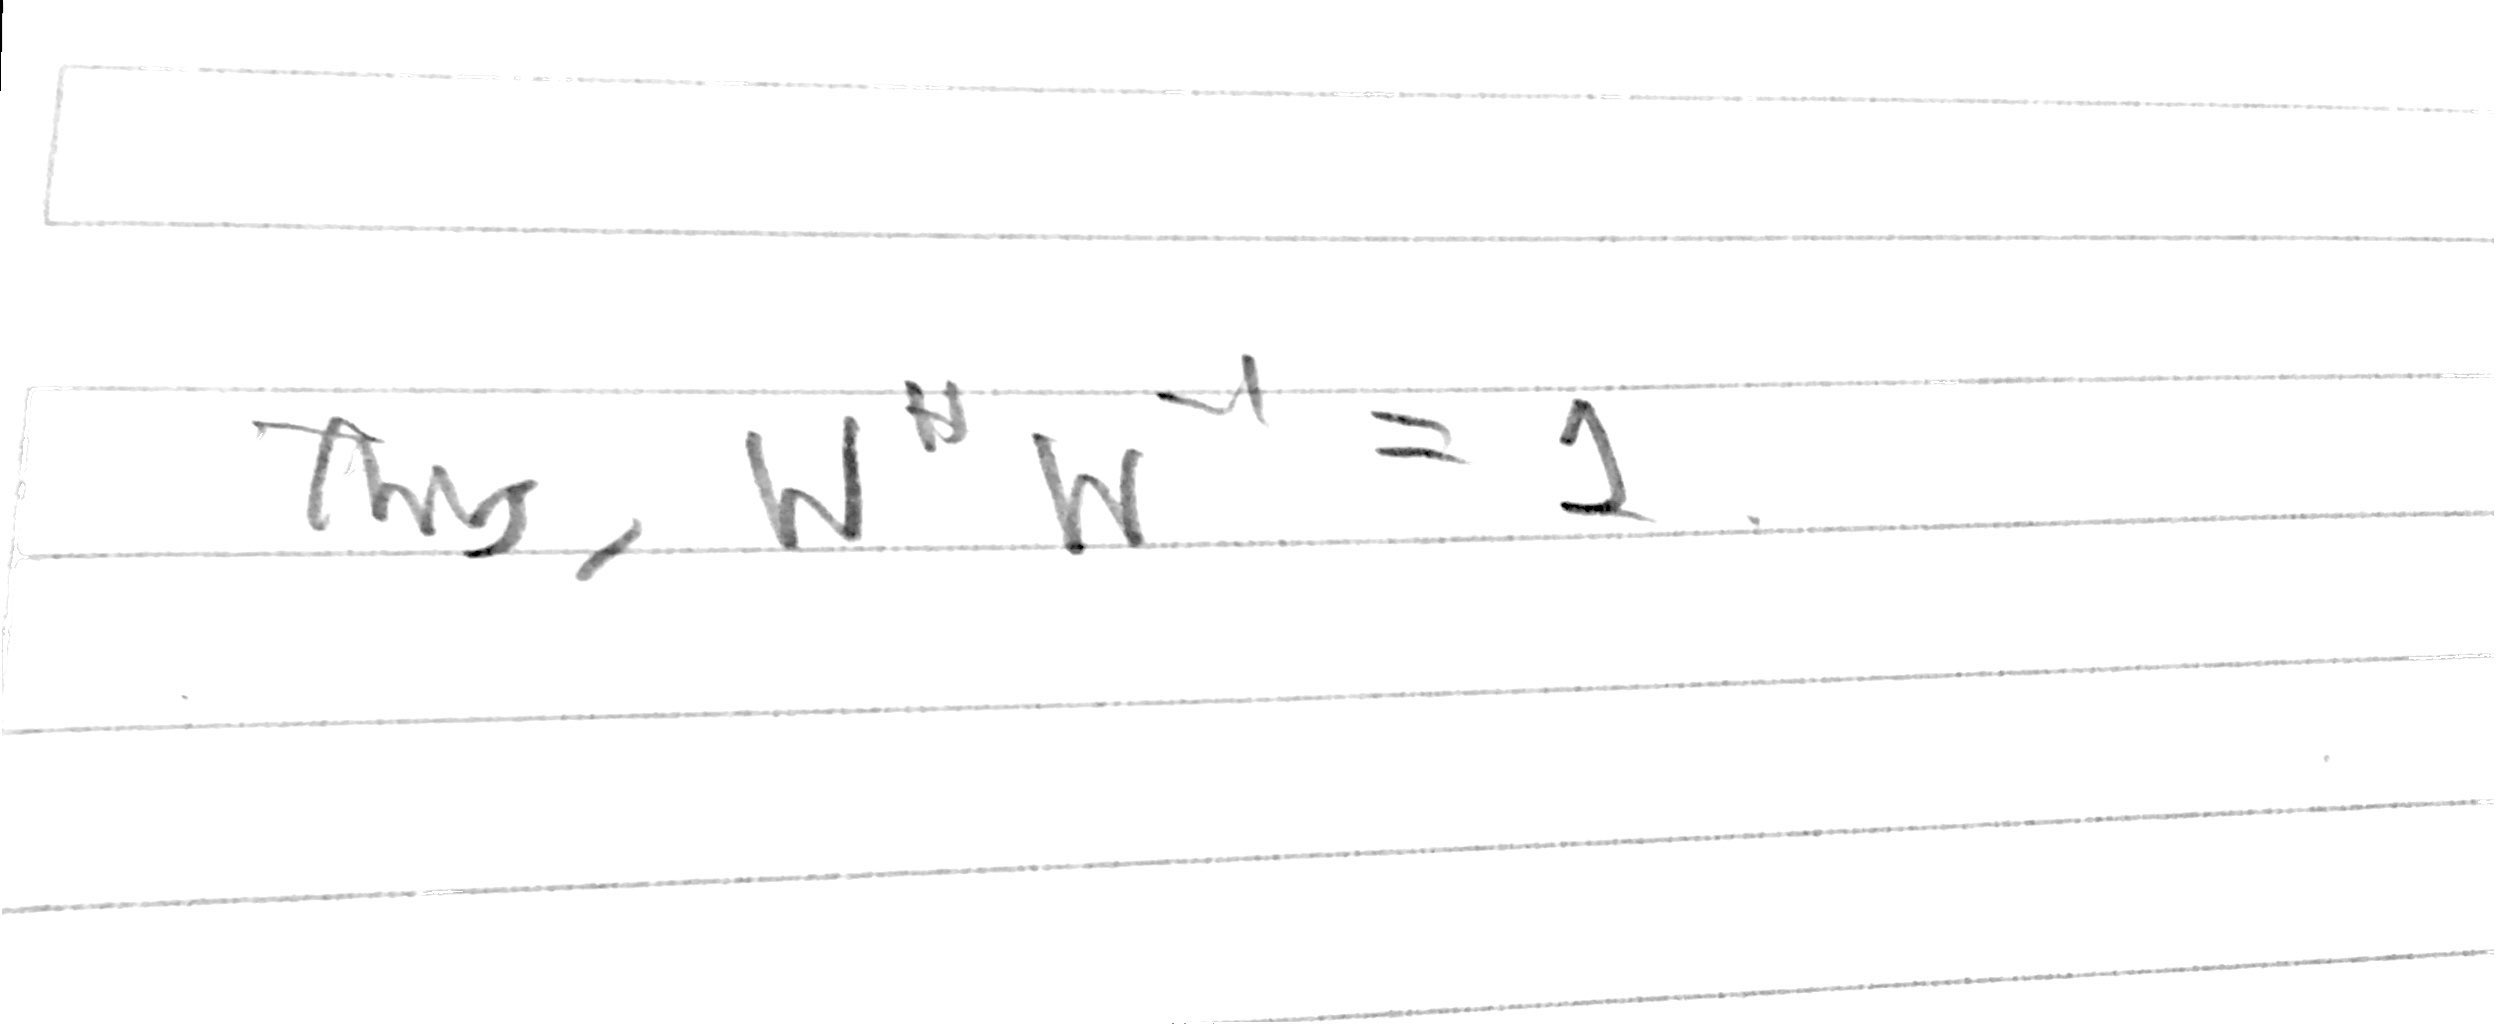 Thus, W^H W^-1 = 1.